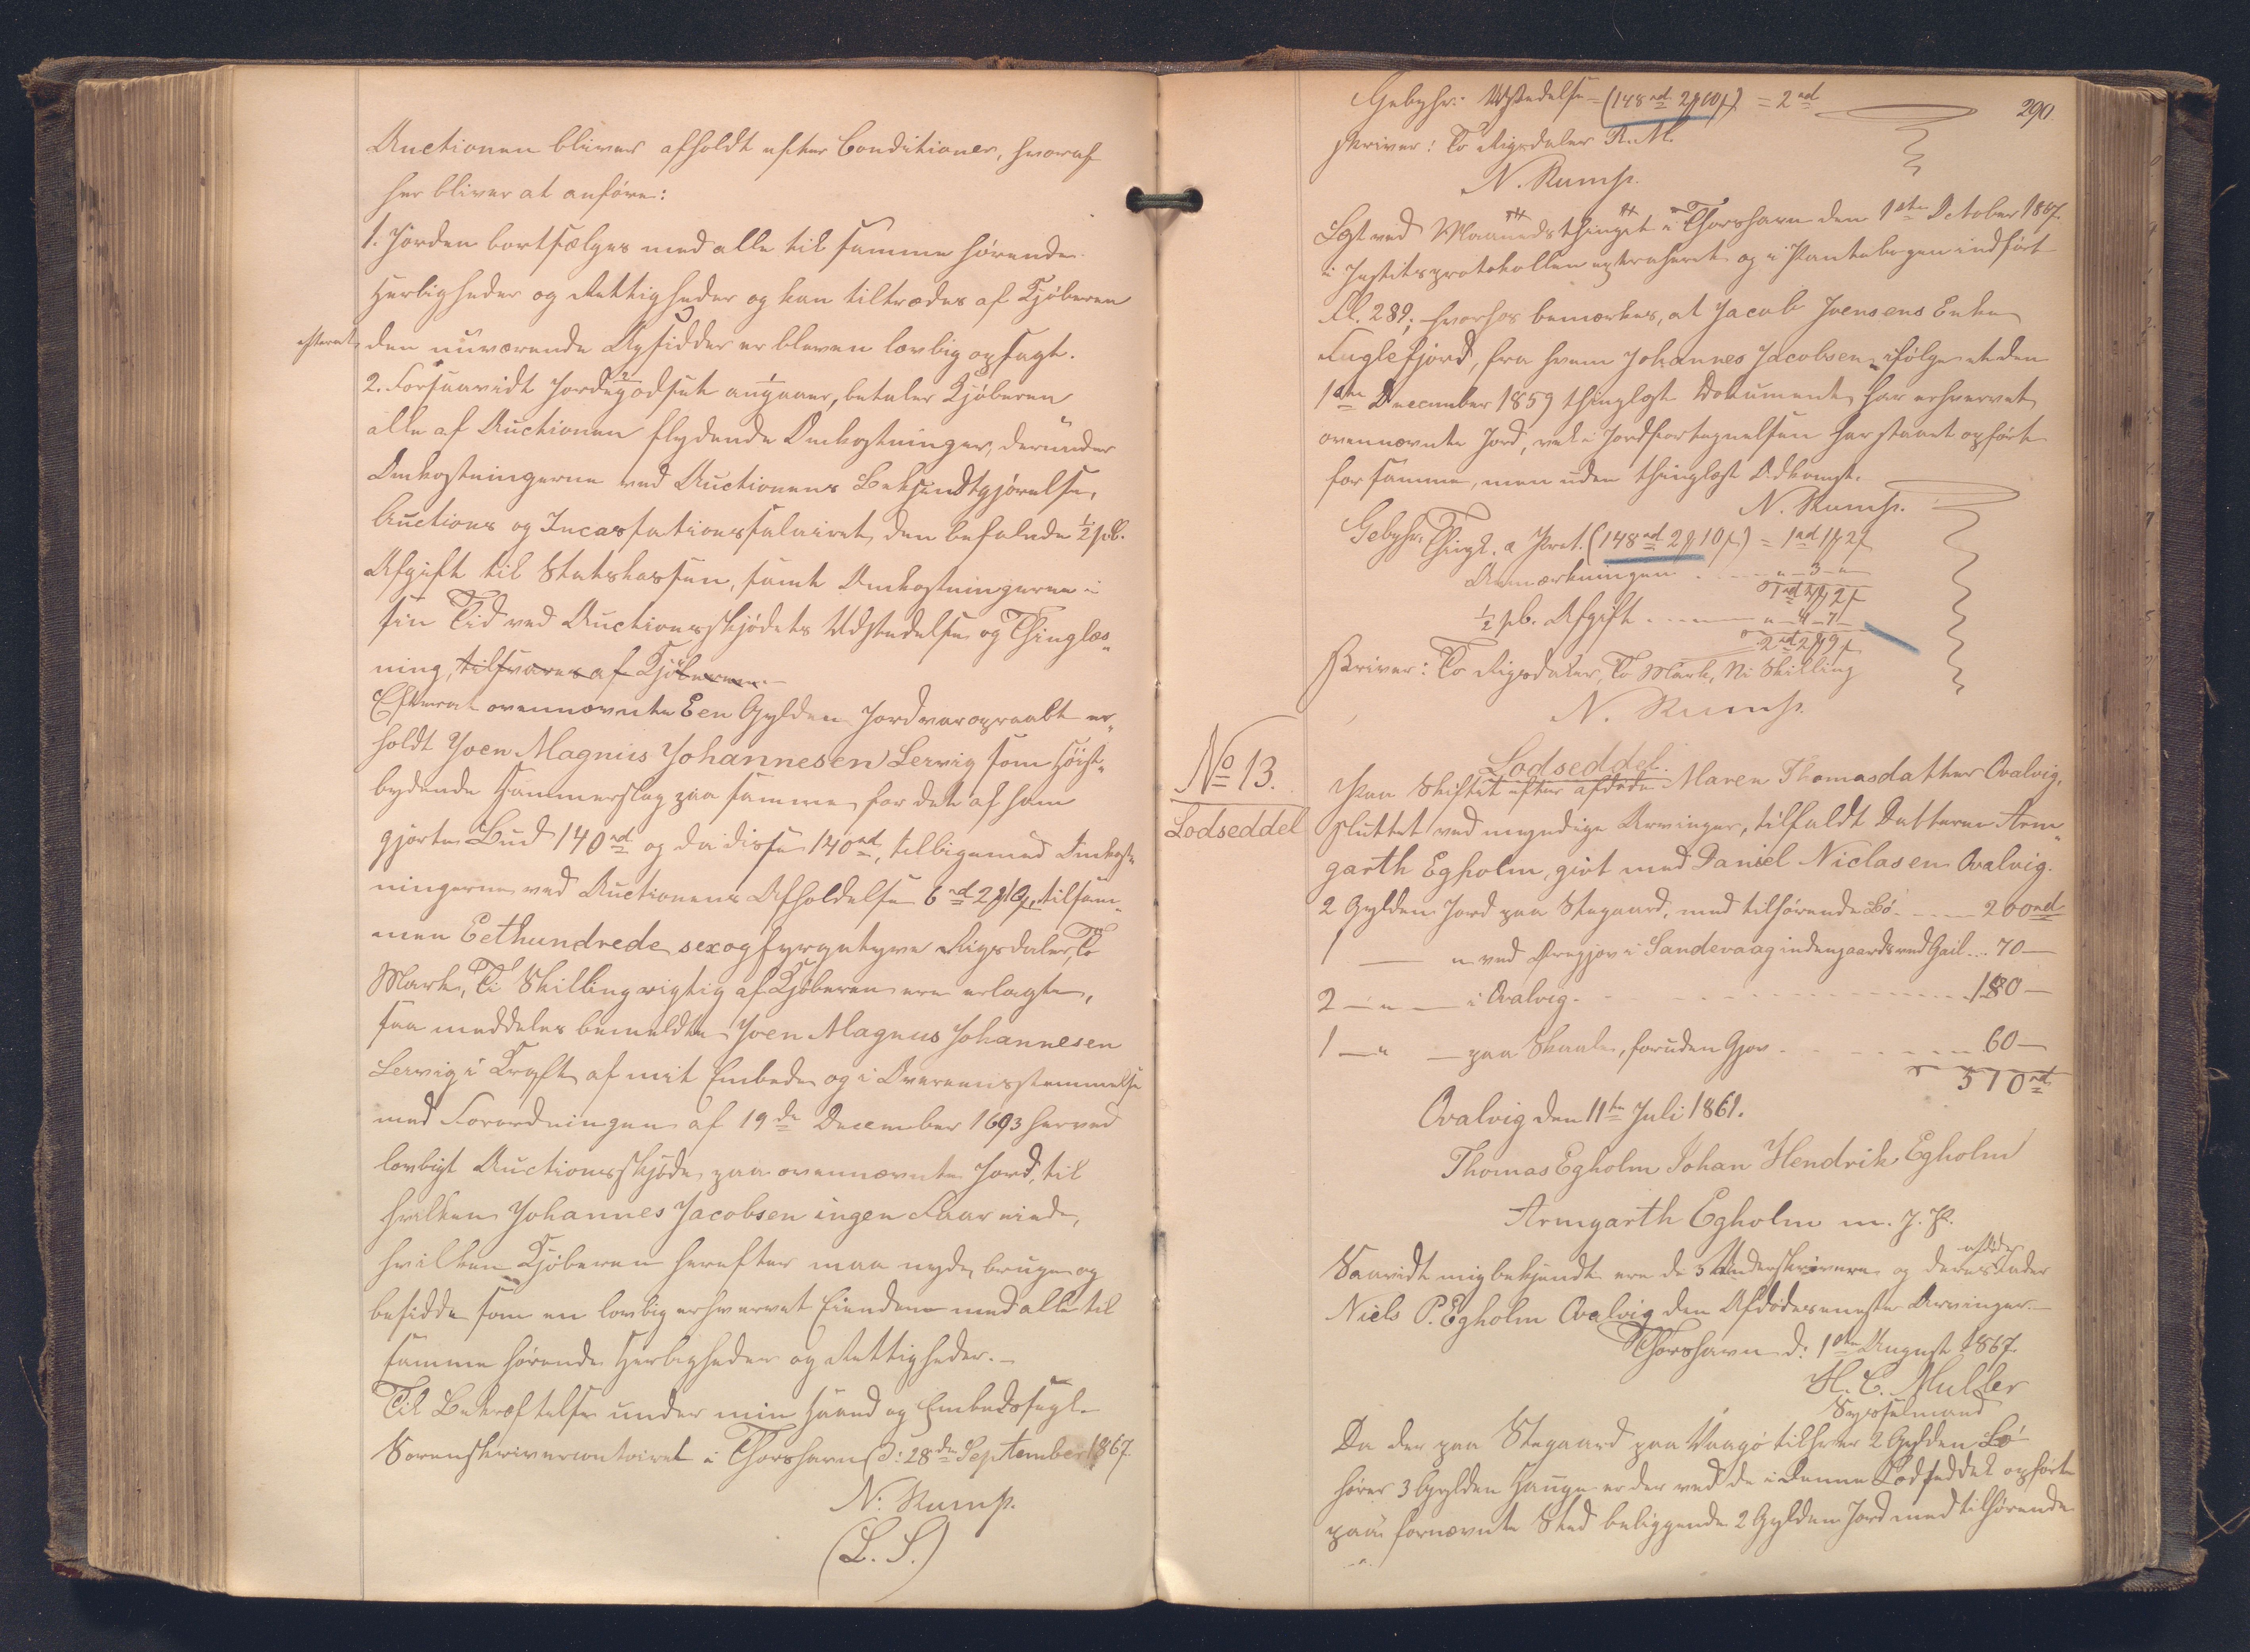 Auctionen bliver afholdt efter Conditioner, hvoraf
her bliver at anføre:
1. Jorden bortsælges med alle til samme hørende
Herligheder og Rettigheder og kan tiltrædes af Kjøberen
efterat den nuværende Opsidder er bleven lovlig opsagt.
2. Forsaavidt Jordegodset angaaer, betaler Kjøberen
alle af Auctionen flydende Omkostninger, derunder
Omkostningerne ved Auctionens Bekjendtgjørelse,
Auctions og Incassationssalairet, den befalede ½ pCt.
Afgift til Statskassen, samt Omkostningerne i
sin Tid ved Auctionsskjødets Udstedelse og Thinglæs„
ning, tilsvares af Kjøberen.
Efterat ovennævnte Een Gylden Jord var opraabt er„
holdt Joen Magnus Johannesen Lervig som Høist„
bydende Hammerslag paa samme for det af ham
gjorte Bud 140 rd og da disse 140 rd, tilligemed Omkost„
ningerne ved Auctionens Afholdelse 6 rd 2 ₰ 10 s, tilsam„
men Eethundrede sexogfyrgetyve Rigsdaler, To
Mark, Ti Skilling rigtig af Kjøberen ere erlagte,
saa meddeles bemeldte Joen Magnus Johannesen
Lervig i Kraft af mit Embede og i Overeensstemmelse
med Forordningen af 19de December 1693 herved
lovligt Auctionsskjøde paa ovennævnte Jord, til
hvilken Johannes Jacobsen ingen Faar eiede,
hvilken Kjøberen herefter maa nyde, bruge og
besidde som en lovlig erhvervet Eiendom med alle til
samme hørende Herligheder og Rettigheder.
Til Bekræftelse under min Haand og Embedssegl.
Sorenskrivercontoiret i Thorshavn d: 28de September 1867.
N. Rump.
(L. S.)
290
Gebyhr: Udstedelse (148 rd 2 ₰ 10 s) = 2 rd
skriver: To Rigsdaler R. M.
N. Rump.
Læst ved Maanedsthinget i Thorshavn den 1ste October 1867.
i Justitsprotokollen extraheret og i Pantebogen indført
Fol. 289; hvorhos bemærkes, at Jacob Joensens Enke
Fuglefjord, fra hvem Johannes Jacobsen, ifølge et den
1ste December 1859 thinglyst Dokument, har erhvervet
ovennævnte Jord, vel i Jordfortegnelsen har staaet opført
for samme, men uden thinglæst Adkomst.
N. Rump.
Gebyhr. Thingl. a Prot. (148 rd 2 ₰ 10 s) = 1 rd 1 ₰ 2 s
Anmærkningen „ - 3 - „
1 rd 4 ₰ 2 s
½ pCt. Afgift „ - 4 - 7
2 rd 2 ₰ 9 s
Skriver: To Rigsdaler, To Mark, Ni Skilling
N. Rump.
No 13.
Lodseddel
Lodseddel.
Paa Skiftet efter afdøde Maren Thomasdatter Qvalvig,
sluttet ved myndige Arvinger, tilfaldt Datteren Arm„
garth Egholm, givt med Daniel Niclasen Qvalvig.
2 Gylden Jord paa Stegaard, med tilhørende Lø 200 rd
1 — „ ved Øregjov i Sandevaag indengaards ved Gail 70 —
2 — „ — i Qvalvig. 180 —
1 — „ — paa Skaale, foruden Gjov 60 —
510 rd
Qvalvig den 11te Juli 1861.
Thomas Egholm Johan Hendrik Egholm
Armgarth Egholm m. f. P.
Saavidt mig bekjendt ere de 3 Underskrivere og deres afdøde Fader
Niels P. Egholm Qvalvig den Afdødes eneste Arvinger.
Thorshavn d: 1ste August 1867.
H. C. Muller
Sysselmand
Da der paa Stegaard paa Vaagø til hver 2 Gylden Bø
hører 3 Gylden Hauge er der ved de i denne Lodseddel opførte
paa fornævnte Sted beliggende 2 Gylden Jord med tilhørende